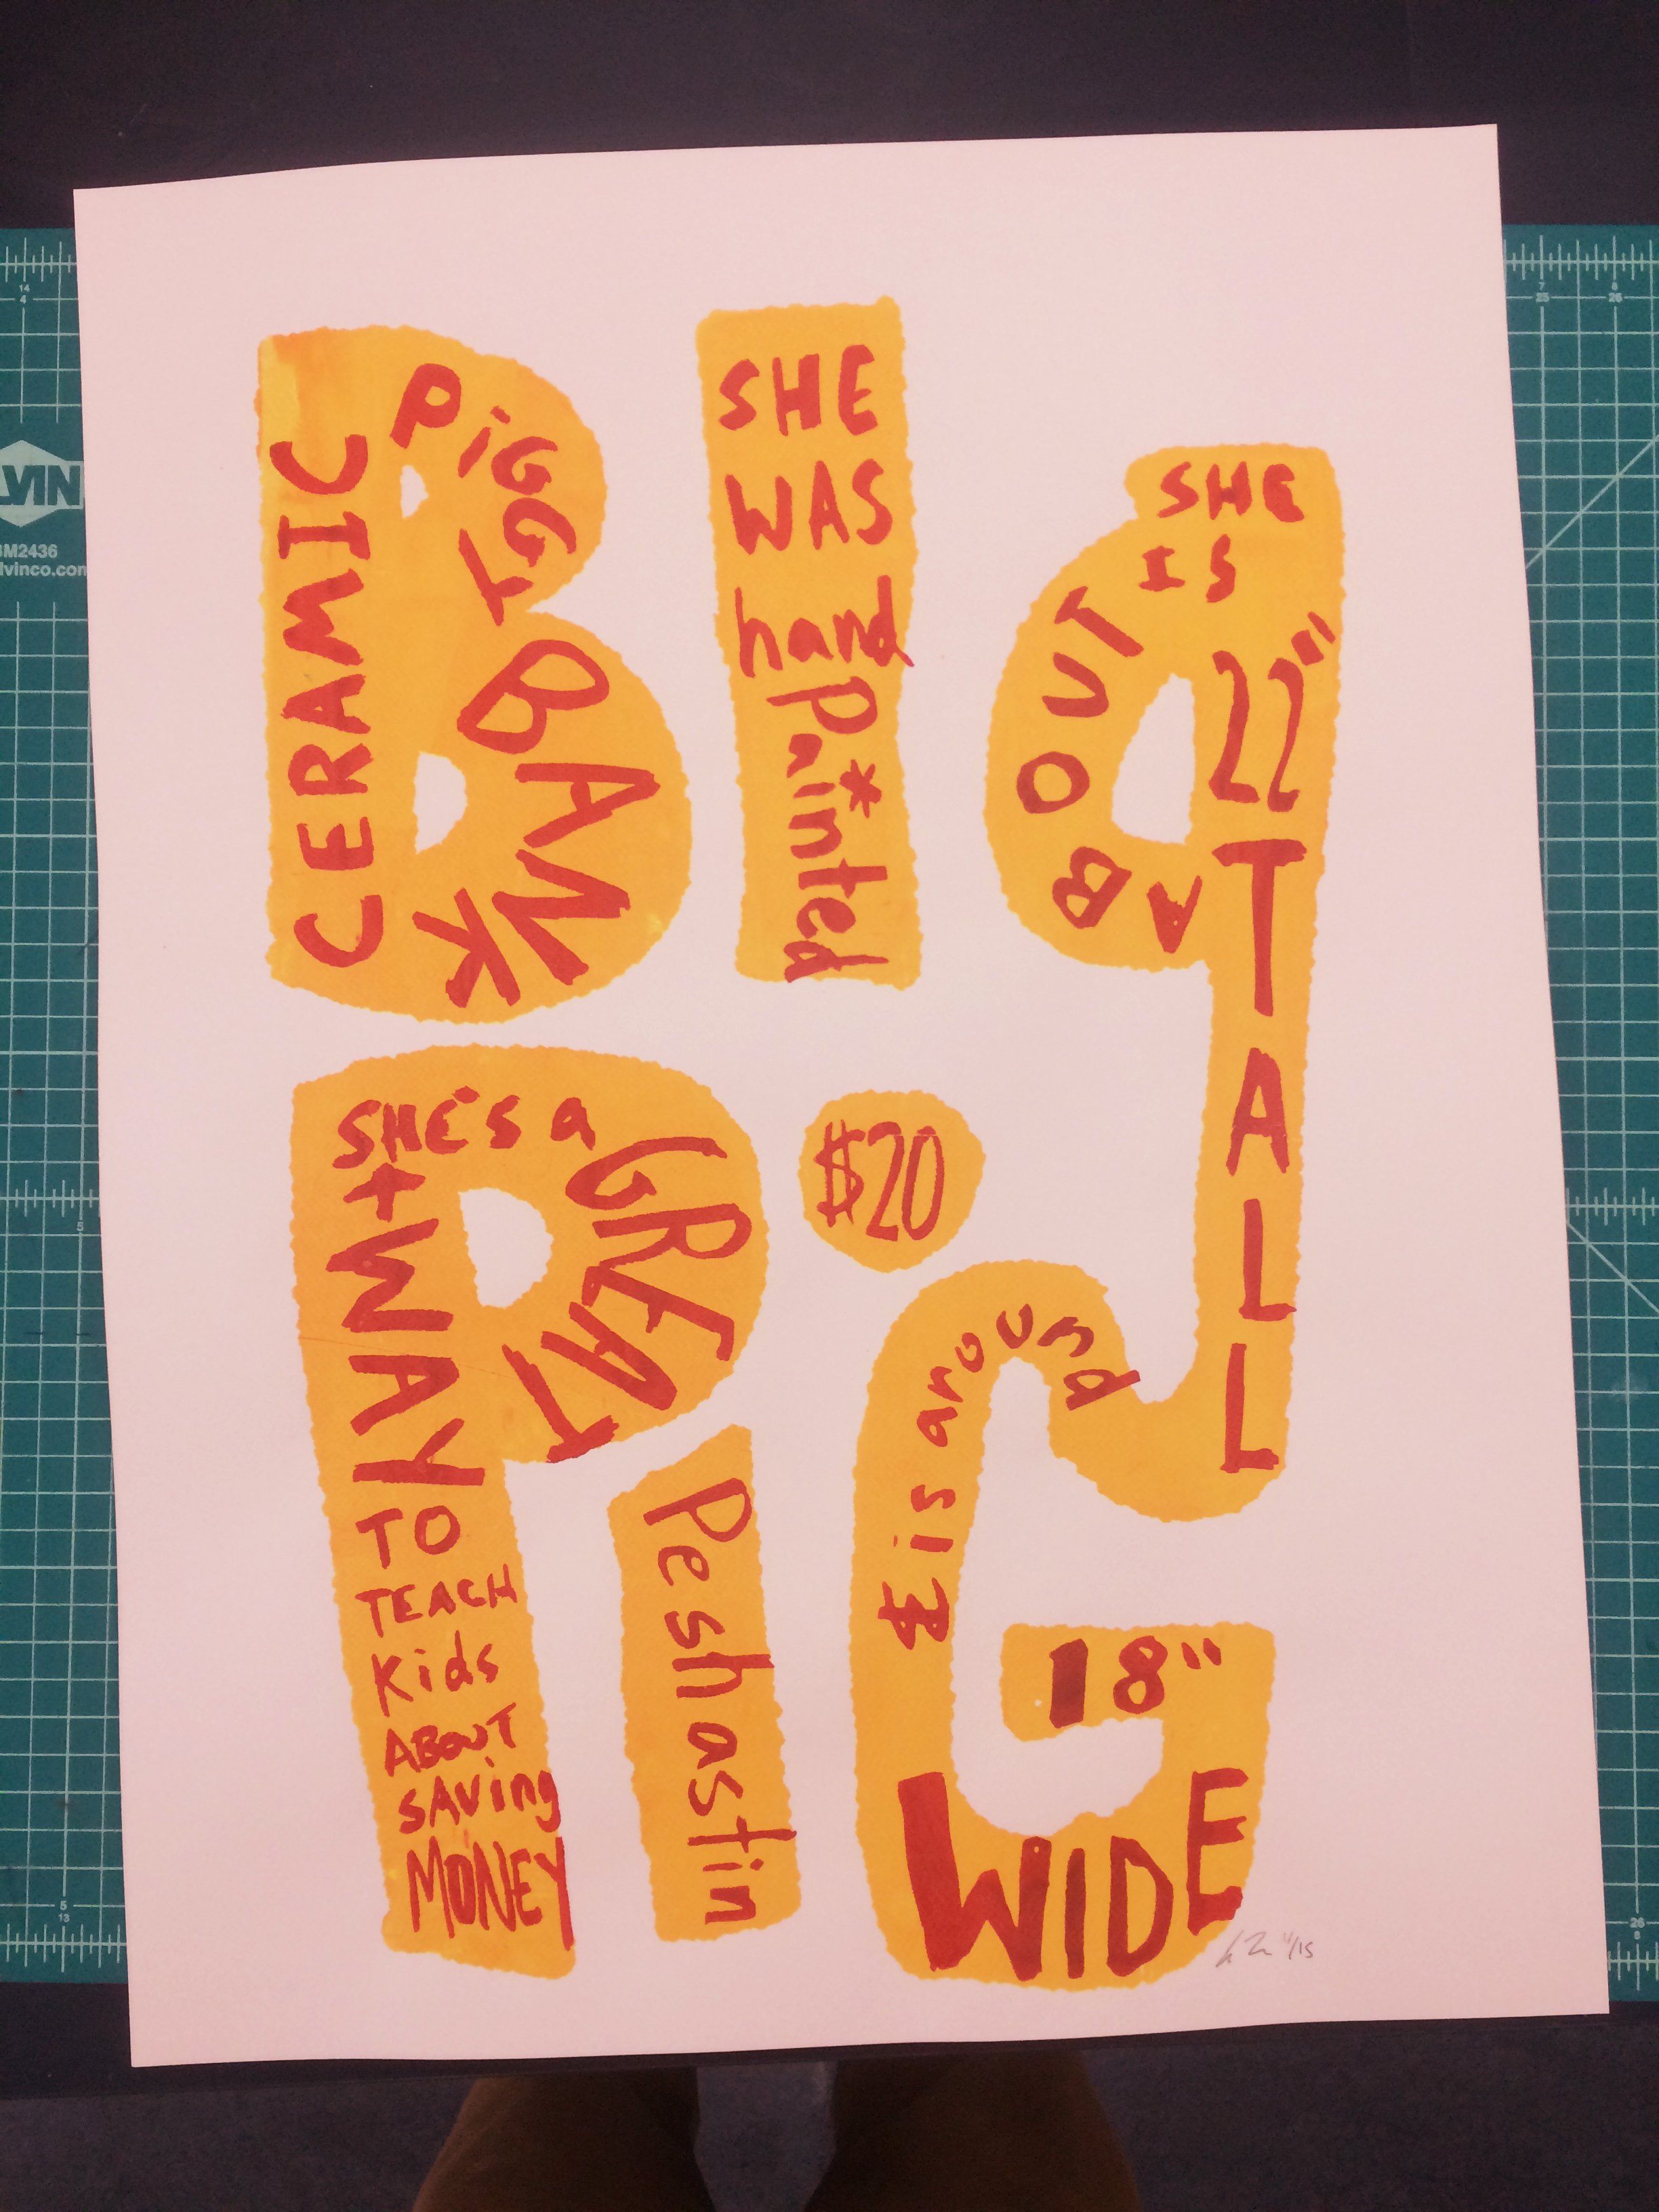 Big
CERAMIC
PiGGY
BANK
SHE
WAS
hand
Painted
*
SHE
IS
ABOUT
22"
TALL
Pig
SHE'S a
GREAT
WAY
TO
TEACH
Kids
ABOUT
SAVing
MONEY
$20
Peshastin
& is around
18"
WIDE
11/15
VIN
BM2436
lvinco.com
14
4
7
25
8
26
5
5
13
26
8